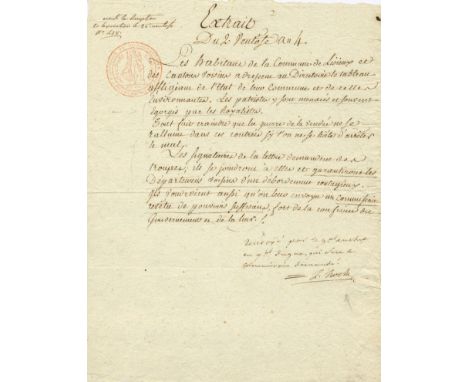 Extrait
Du 2 Ventose an 4
Les habitans de la Commune de Lisieux et
des Cantons voisins adressent au Directoire le tableau
affligeant de l'Etat de leur Commune et de celles
Environnantes. Les patriotes y sont menacés et souvent
égorgés par les Royalistes.
Tout fait craindre que la guerre de la Vendée ne se
rallume dans ces contrées si l'on ne se hâte d'arrêter
le mal.
Les signataires de la lettre demandent des
troupes; ils se joindront à elles et garantiront les
Départemens voisins d'un débordement contagieux.
Ils voudroient aussi qu'on leur envoyat un Commissaire
revêtu de pouvoirs suffisans, fort de la confiance du
Gouvernement et de la leur.
Renvoyé pour le
au Gal qui sera le
Commissaire demandé